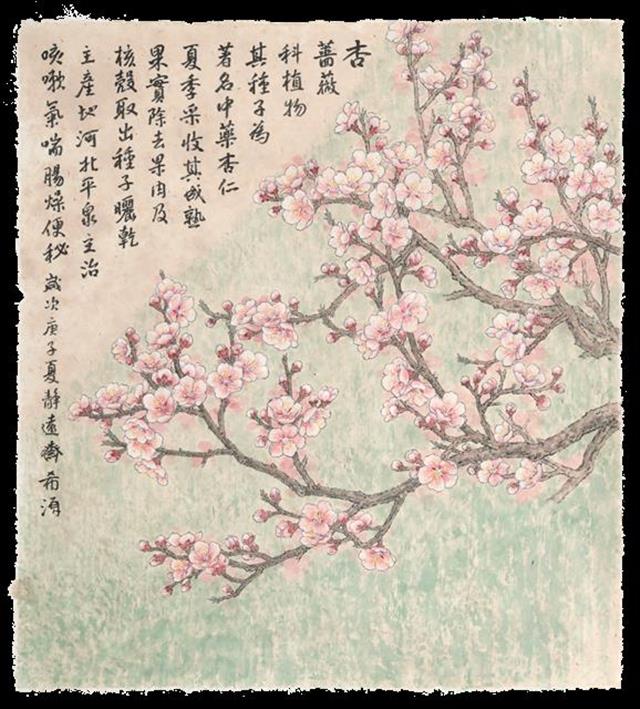 杏
薔薇
科植物
其種子為
著名中藥杏仁
夏季采收其成熟
果實除去果肉及
核殼取出種子曬乾
主產地河北平泉主治
咳嗽氣喘腸燥便秘歲次庚子夏靜遠齋希